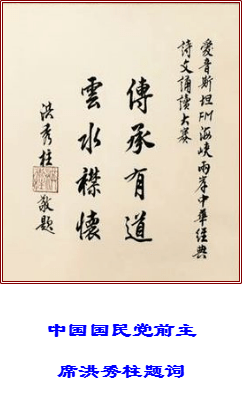 愛音斯坦FM海峽兩岸中華經典
詩文誦讀大賽
傳承有道
雲水襟懷
洪秀柱
敬題
中国国民党前主
席洪秀柱题词